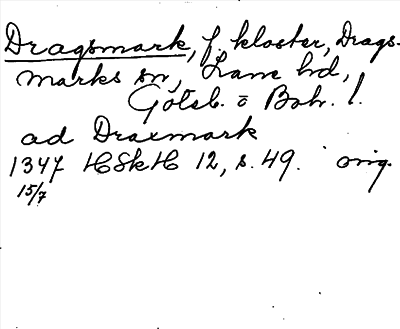 Dragsmark, f. kloster, Drags-
marks sn, Lane hd,
Göteb. o Boh. l.
ad Draxmark
1347 HSkH 12, s. 49. orig.
15/7